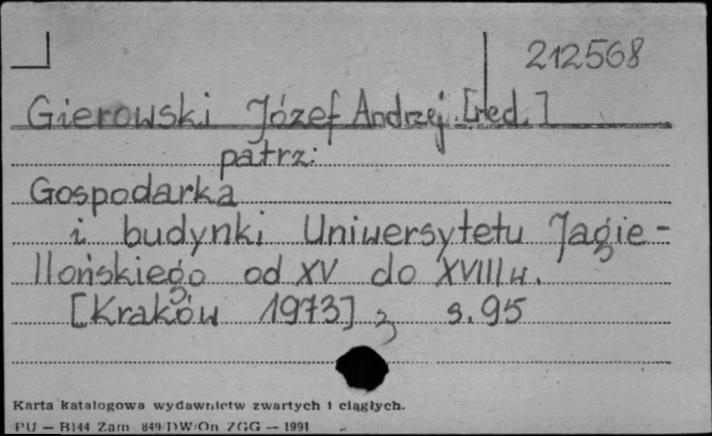 212568
Gierowski Józef Andrzej [red.]
patrz:
Gospodarka
i budynki Uniwersytetu Jagie-
llońskiego od XV do XVIII w.
[Kraków 1973] s. 95
Karta katalogowa wydawnictw zwartych i ciągłych.
PU — B144 Zam 849/DW/On ZGG — 1991